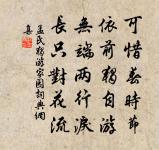 可惜春時節
依前獨自游
無端兩行淚
長只對花流
孟氏獨游家園詞典網
喜